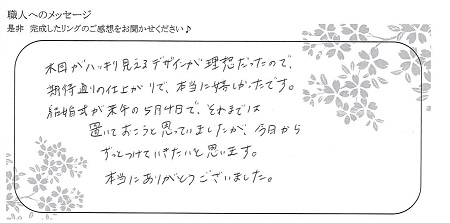 職人へのメッセージ
是非 完成したリングのご感想をお聞かせください♪
木目がハッキリ見えるデザインが理想だったので、
期待通りの仕上がりで、本当に嬉しかったです。
結婚式が来年の5月4日で、それまでは
置いておこうと思っていましたが、今日から
ずっとつけていきたいと思います。
本当にありがとうございました。